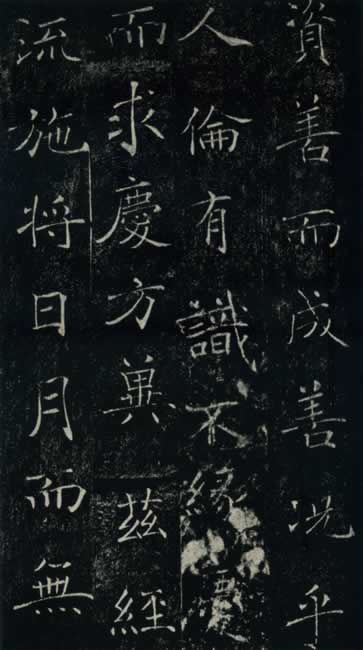 資善而成善况乎
人倫有識不緣慶
而求慶方冀茲經
流施将日月而無